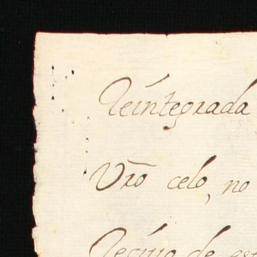 Reintegrada
Vrō celo, no
Recivo de est